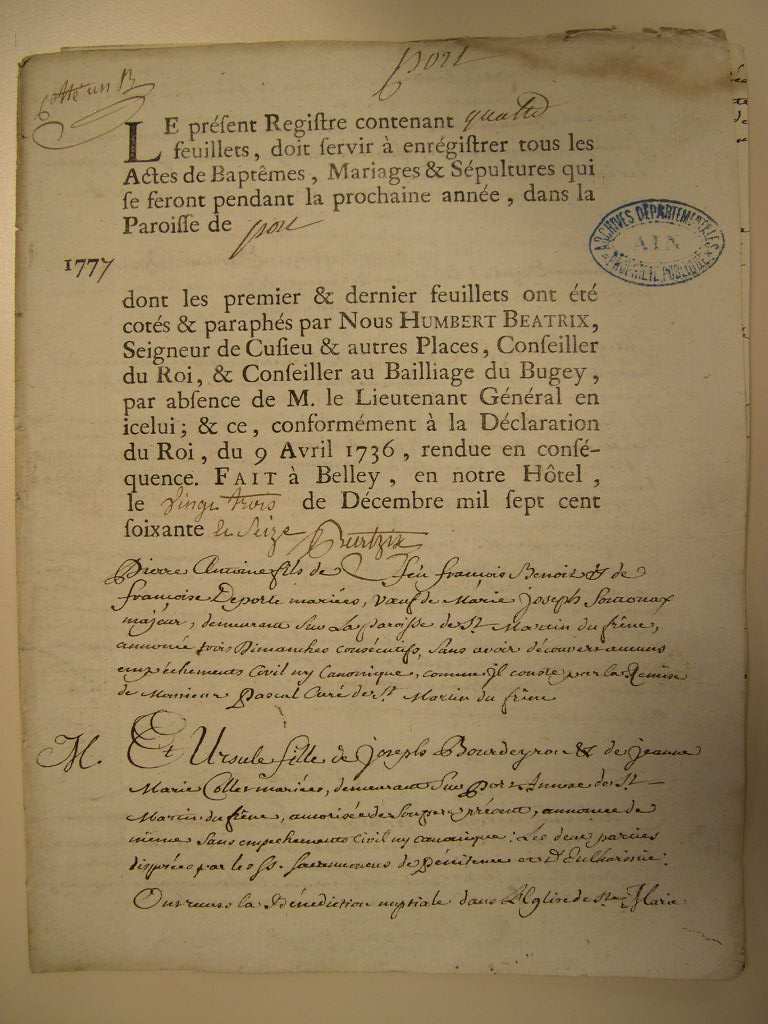 Cotté un B
port
LE présent Registre contenant quatre
feuillets, doit servir à enrégistrer tous les
Actes de Baptêmes, Mariages & Sépultures qui
se feront pendant la prochaine année, dans la
Paroisse de port
ARCHIVES DÉPARTEMENTALES
AIN
PROPRIÉTÉ PUBLIQUE
1777
dont les premier & dernier feuillets ont été
cotés & paraphés par Nous HUMBERT BEATRIX,
Seigneur de Cusieu & autres Places, Conseiller
du Roi, & Conseiller au Bailliage du Bugey,
par absence de M. le Lieutenant Général en
icelui; & ce, conformément à la Déclaration
du Roi, du 9 Avril 1736, rendue en consé-
quence. FAIT à Belley, en notre Hôtel,
le vingt trois de Décembre mil sept cent
soixante et seize
Pierre Antoine fils de feu françois Benoit & de
françoise Deporte mariées, Vœuf de Marie Joseph
majeur, demeurant sur La paroisse de St. Martin du frêne,
annoncé trois Dimanches consécutifs, sans avoir découvert aucuns
empêchements Civil ny Canonique, comme il conste par la Remise
de Monsieur Pascal Curé de St. Martin du frêne
M. Et Ursule fille de Joseph Bourdeyron & de jeanne
Marie Collet mariées, demeurant Sur Port Annexe de St.
Martin du frêne, autorisée de son père présent, annoncée de
même sans empêchements Civil ny canonique: Les deux parties
disposées par les SS. Sacrements de Pénitence et D'Eucharistie:
Ont reçus la Bénédiction nuptiale dans L'Eglise de Ste. Marie